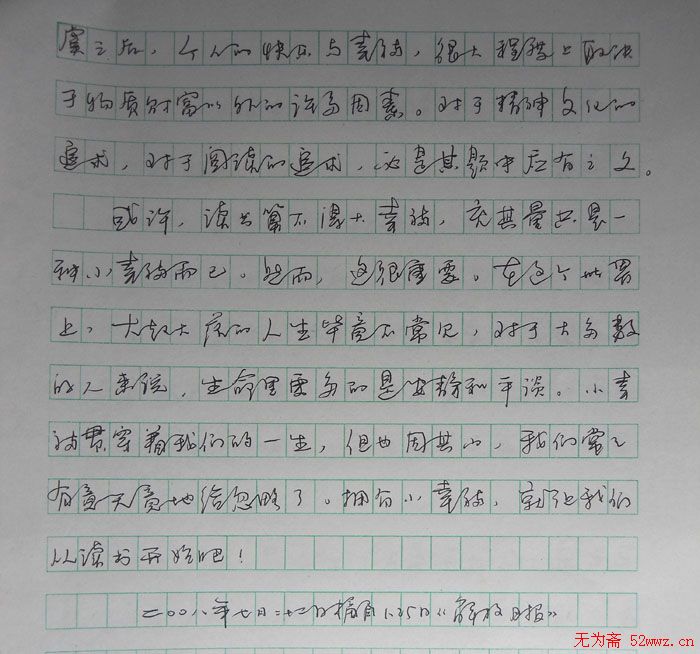 实之后，个人的快乐与幸福，很大程度上取决
于物质财富以外的许多因素。对于精神文化的
追求，对于阅读的追求，必是其题中应有之义。
或许，读书算不得大幸福，充其量只是一
种小幸福而已。然而，这很重要。在这个世界
上，大起大落的人生毕竟不常见，对于大多数
的人来说，生命里更多的是安静和平淡。小幸
福贯穿着我们的一生，但也因其小，我们常常
有意无意地给忽略了。拥有小幸福，就让我们
从读书开始吧！
二〇〇八年七月二十二日摘自《解放日报》
无为斋 52wwz.cn